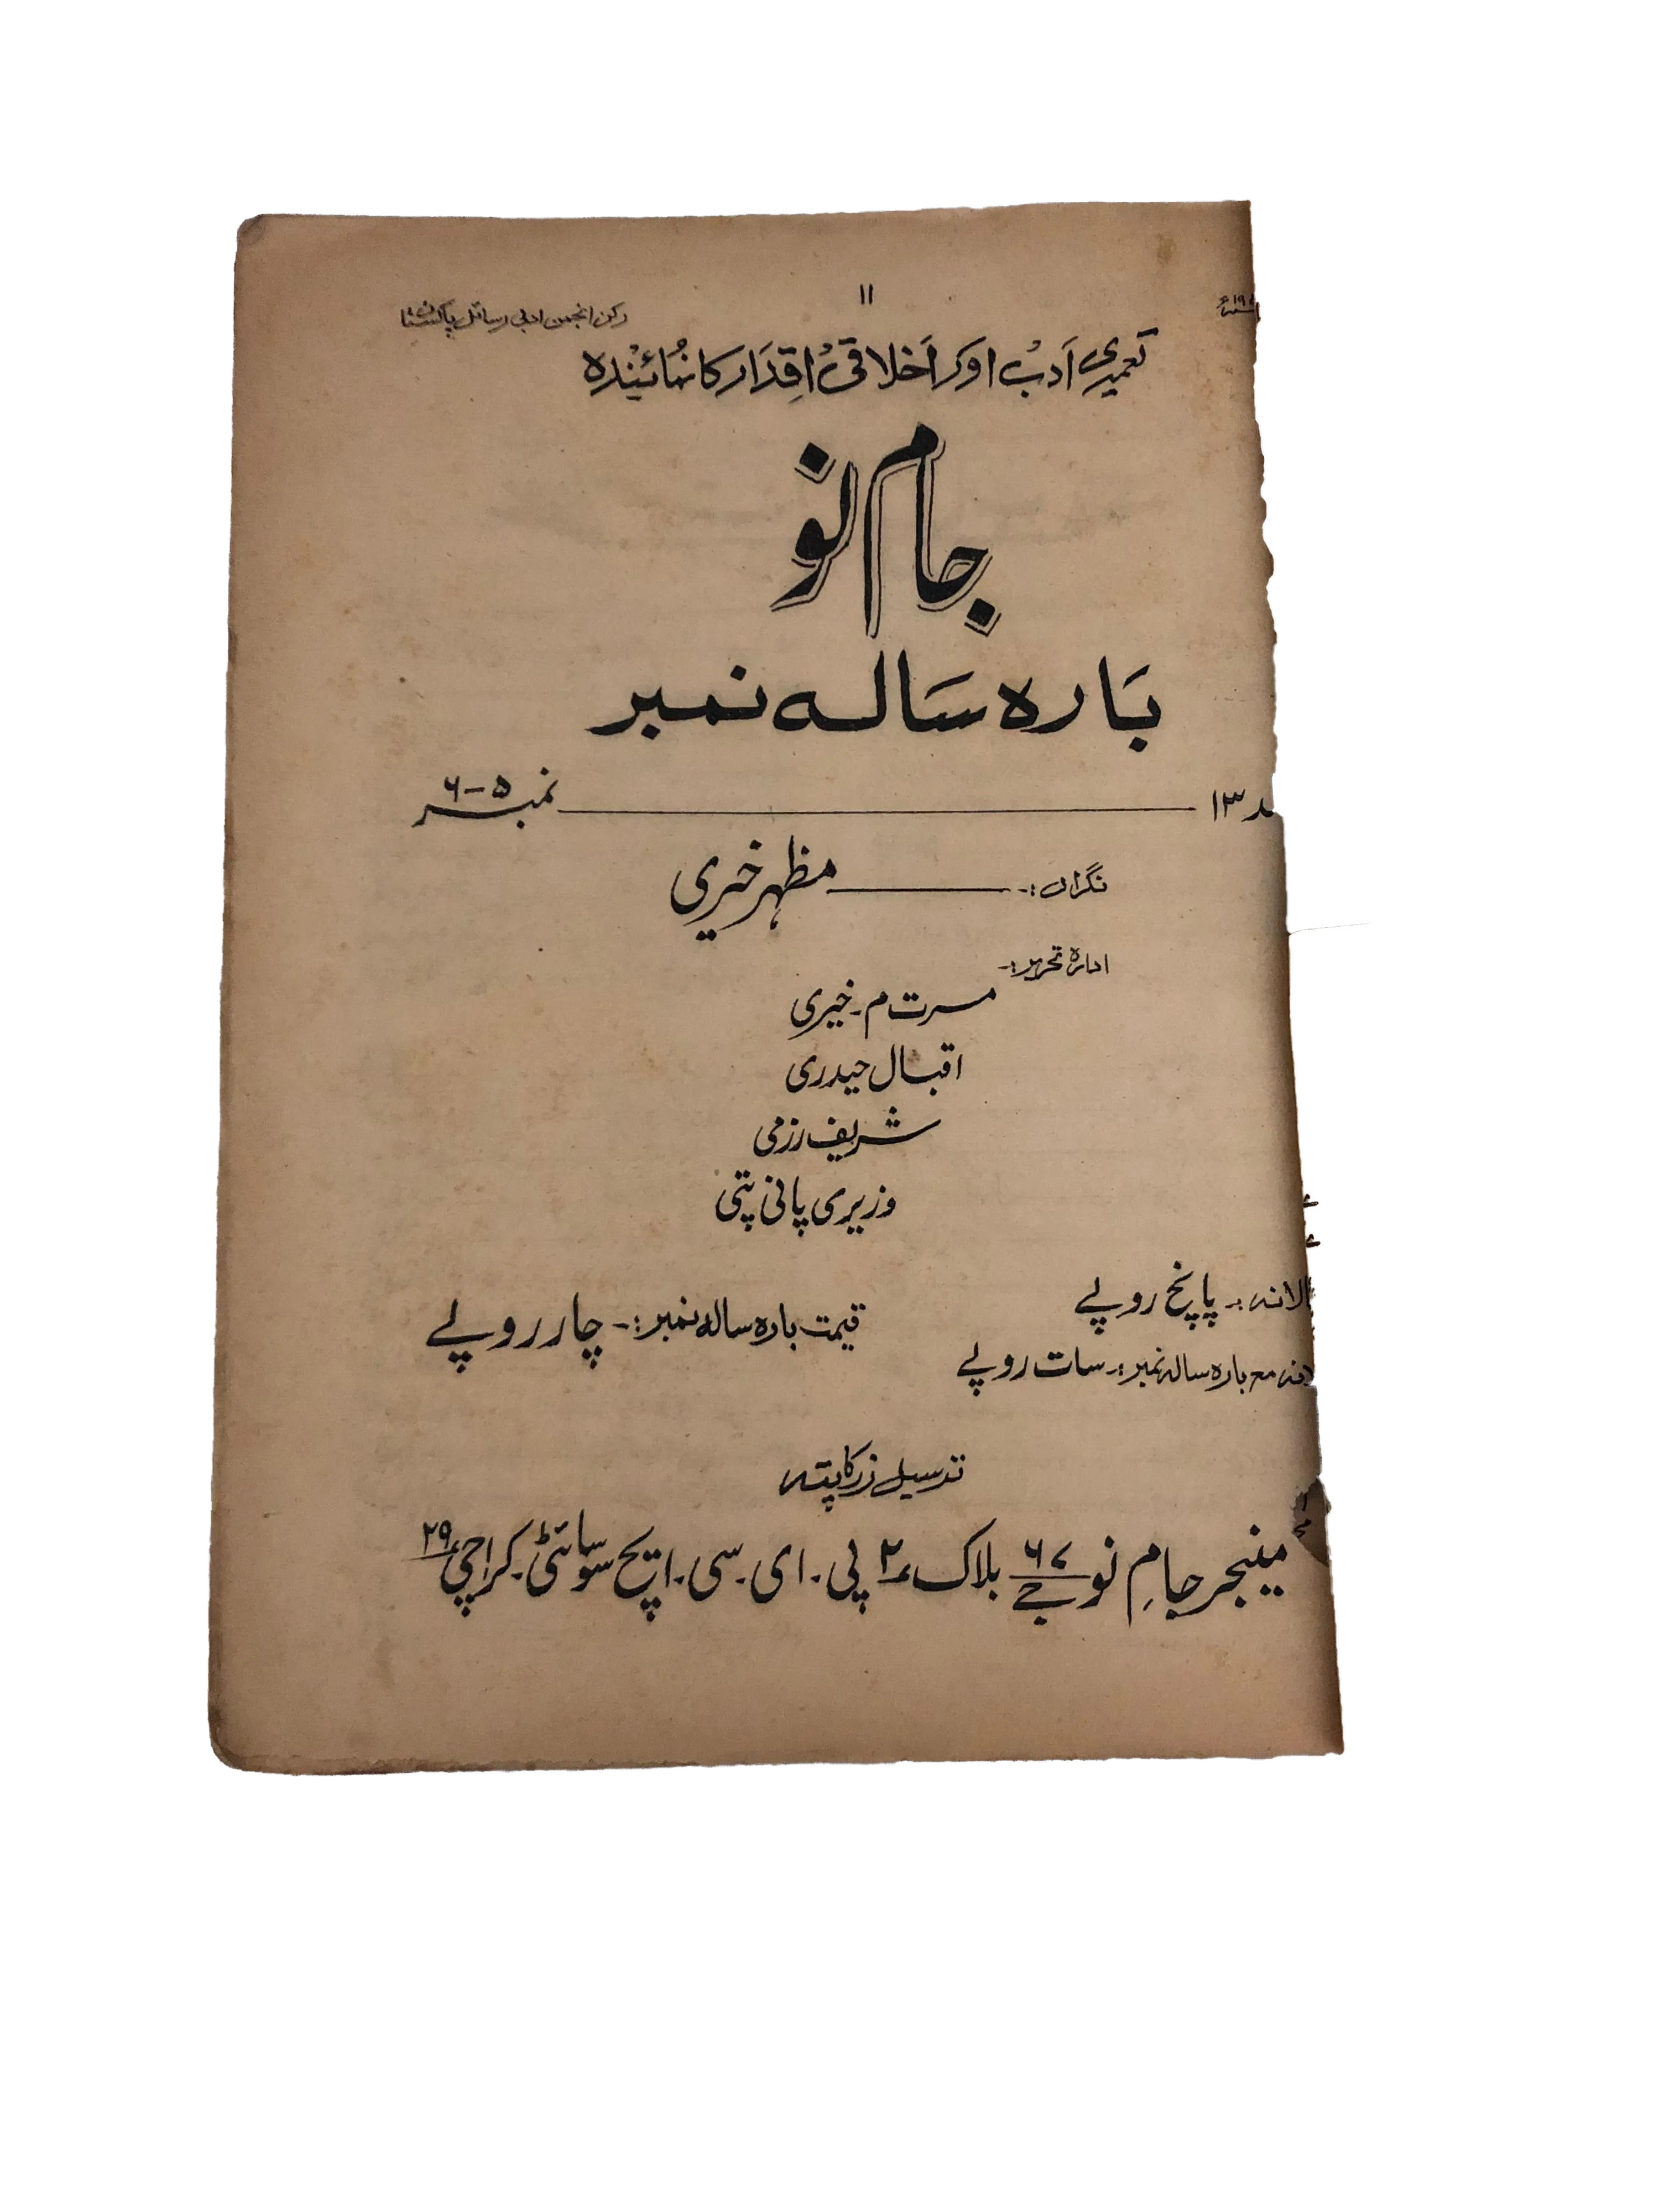 ۱۱
رکن انجمن ادبی رسائل پاکستان
تعمیری اَدبْ اوَر اَخلاقیْ اقِدَار کا نمُائیْندہ
جام نو
بَارہ سَالہ نمبر
۱۳ نمبر ۵-۶
نگراں :- مظہر خیری
ادارہ تحریر :-
مسرت م۔ خیری
اقبال حیدری
شریف رزمی
وزیری پانی پتی
الانہ :- پانچ روپے
قیمت بارہ سالہ نمبر :- چار روپے
مع بارہ سالہ نمبر :- سات روپے
ترسیل زر کا پتہ
منیجر جامِ نو ۶۷/جے بلاک ۲ پی۔ ای۔ سی۔ ایچ سوسائٹی۔ کراچی ۲۹